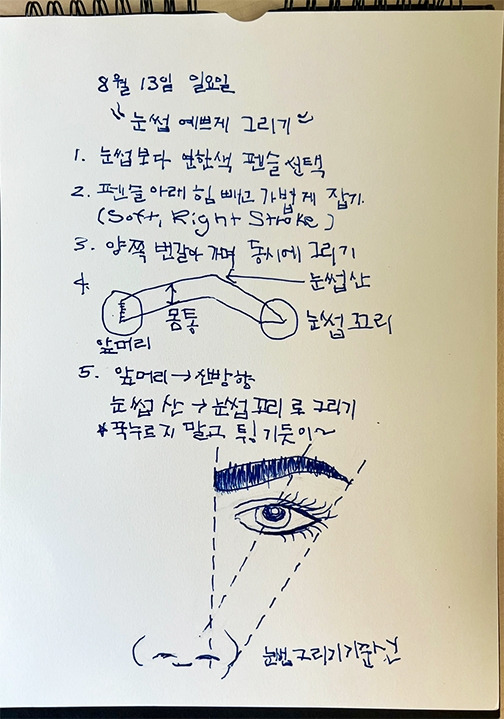 8월 13일 일요일
" 눈썹 예쁘게 그리기 "
1. 눈썹보다 연한색 펜슬 선택
2. 펜슬 아래 힘 빼고 가볍게 잡기.
(Soft, Right Stroke)
3. 양쪽 번갈아 가며 동시에 그리기
4.
눈썹산
몸통
눈썹 꼬리
앞머리
5. 앞머리 → 전방향
눈썹 산 → 눈썹 꼬리로 그리기
* 꾹누르지 말고 튕기듯이~
눈썹 그리기 기준선